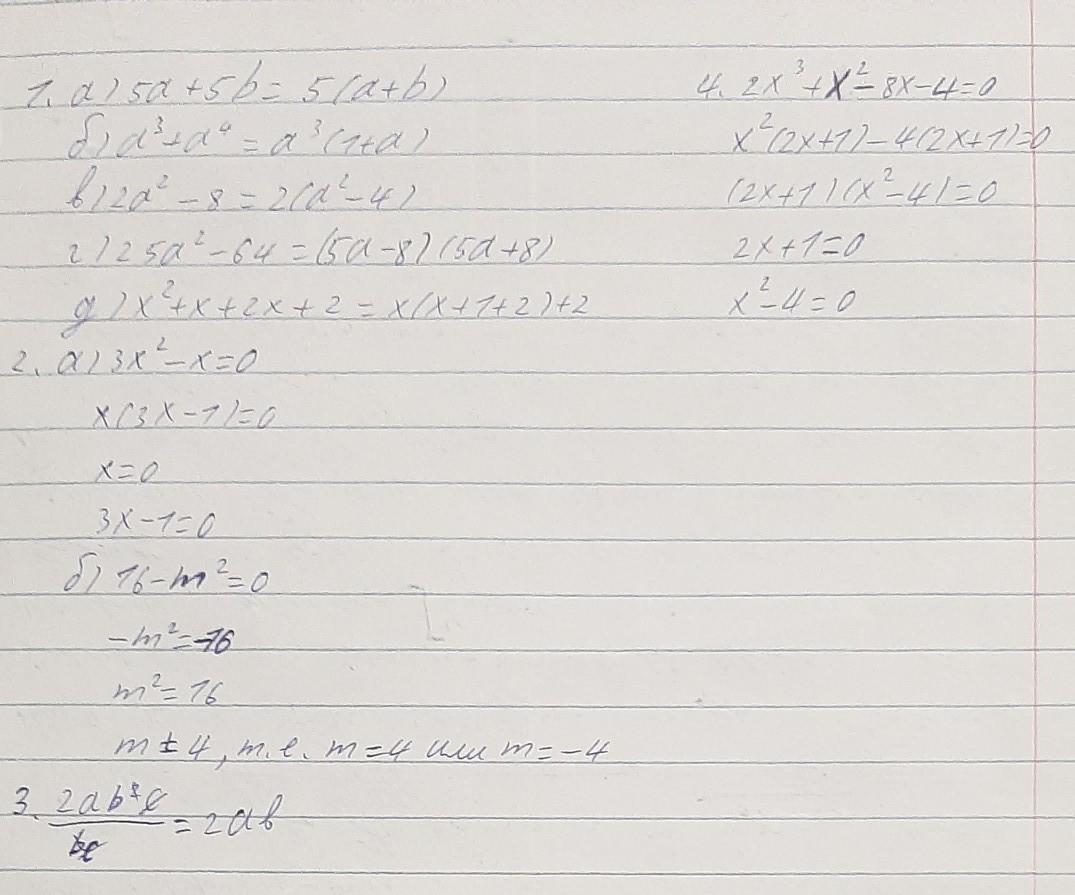 1. а) 5a + 5b = 5(a+b)
б) a³+a⁴ = a³(1+a)
в) 2a² - 8 = 2(a² - 4)
г) 25a² - 64 = (5a - 8)(5a + 8)
д) x² + x + 2x + 2 = x(x+1+2)+2
2. а) 3x² - x = 0
x(3x - 1) = 0
x = 0
3x - 1 = 0
б) 16 - m² = 0
-m² = -16
m² = 16
m ± 4, т.е. m = 4 или m = -4
3. 2ab²c / bc = 2ab
4. 2x³ + x² - 8x - 4 = 0
x²(2x+1) - 4(2x+1) = 0
(2x+1)(x² - 4) = 0
2x+1 = 0
x² - 4 = 0